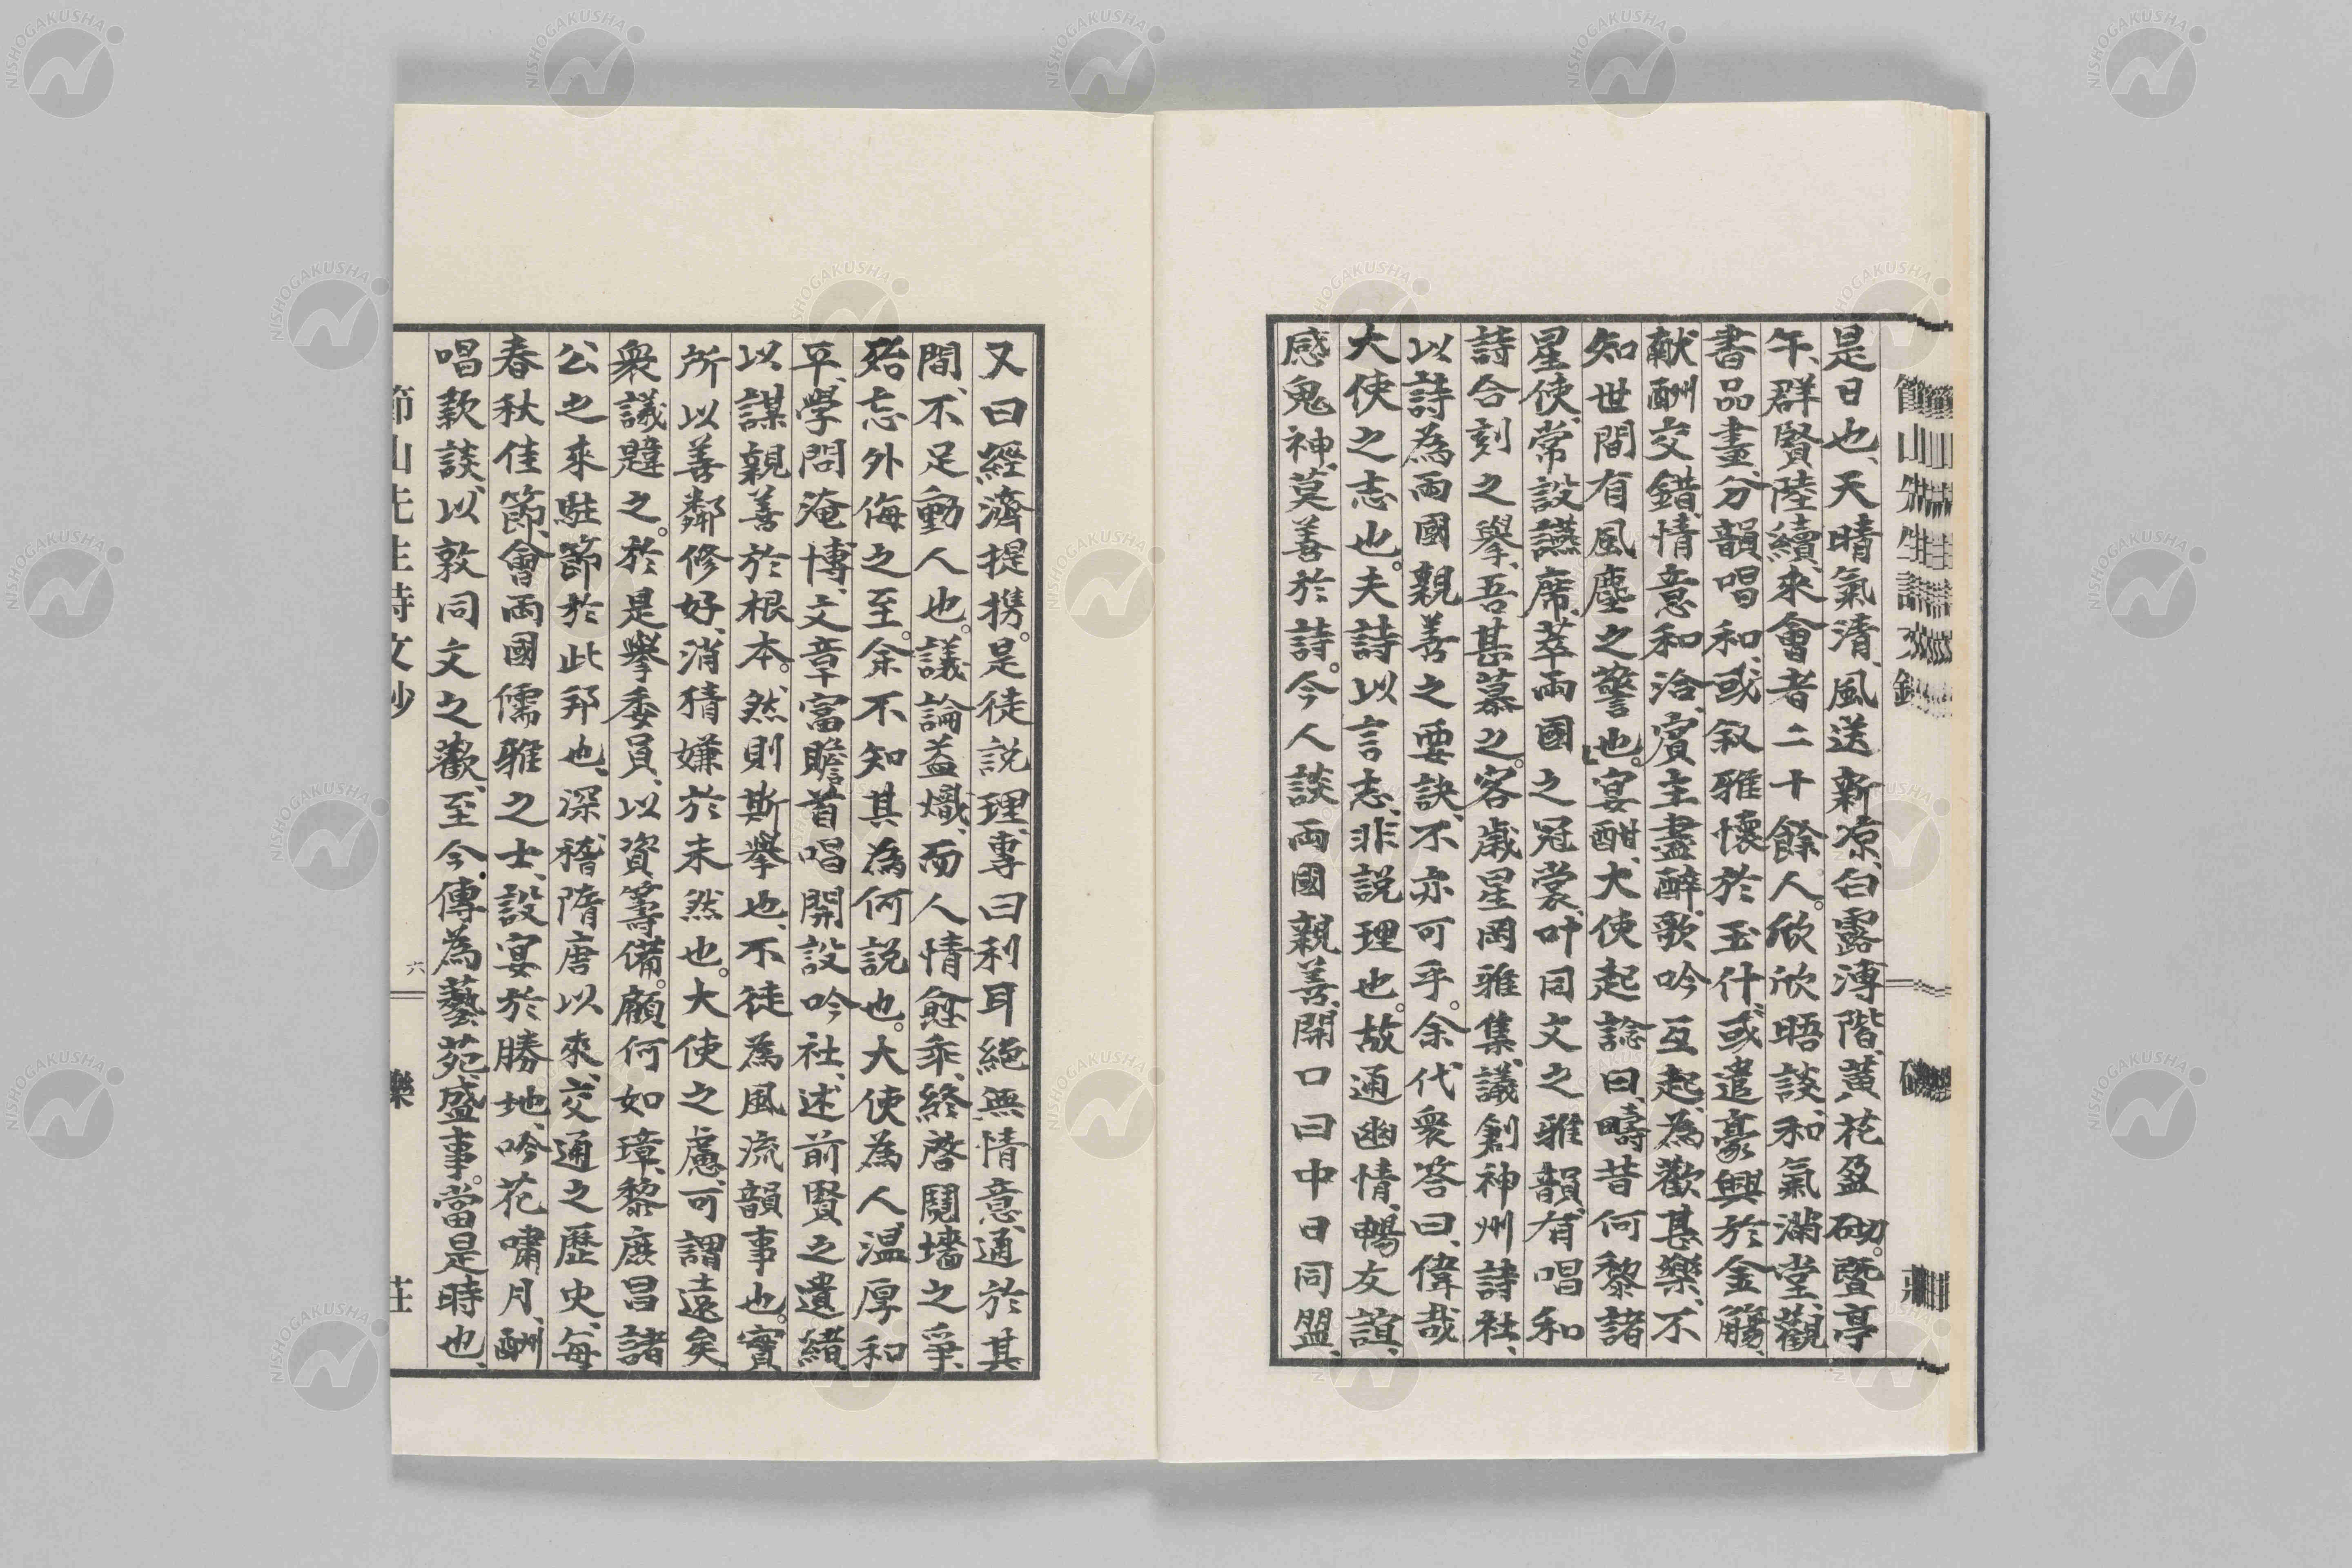 是日也、天晴氣清、風送新凉、白露溥階、黄花盈砌。曁亭
午、群賢陸續來會者二十餘人。欣欣晤談、和氣滿堂、觀
書品畫、分韻唱和、或叙雅懷於玉什、或遣豪興於金觴、
献酬交錯、情意和洽、賓主盡醉、歌吟互起、為歡甚樂、不
知世間有風塵之警也。宴酣、大使起諗曰、疇昔何黎諸
星使、常設讌席、萃兩國之冠裳、叶同文之雅韻、有唱和
詩合刻之擧、吾甚慕之。客歲星岡雅集、議創神州詩社、
以詩為兩國親善之要訣、不亦可乎。余代衆答曰、偉哉
大使之志也。夫詩以言志、非説理也。故通幽情、暢友誼、
感鬼神、莫善於詩。今人談兩國親善、開口曰中日同盟、
又曰經濟提携。是徒説理、專曰利耳、絕無情意、通於其
間、不足動人也。議論益熾、而人情愈乖、終啓鬩墻之爭、
殆忘外侮之至。余不知其為何説也。大使為人温厚和
平、學問淹博、文章富贍、首唱開設吟社、述前賢之遺緒、
以謀親善於根本。然則斯擧也、不徒為風流韻事也。實
所以善鄰修好、消猜嫌於未然也。大使之慮、可謂遠矣
衆議韙之。於是擧委員、以資籌備。顧何如璋、黎庶昌諸
公之來駐節於此邦也、深稽隋唐以來、交通之歷史、每
春秋佳節、會兩國儒雅之士、設宴於勝地、吟花嘯月、酬
唱款談、以敦同文之歡、至今傳為藝苑盛事。當是時也、
節山先生詩文鈔
六
樂
莊
NISHOGAKUSHA